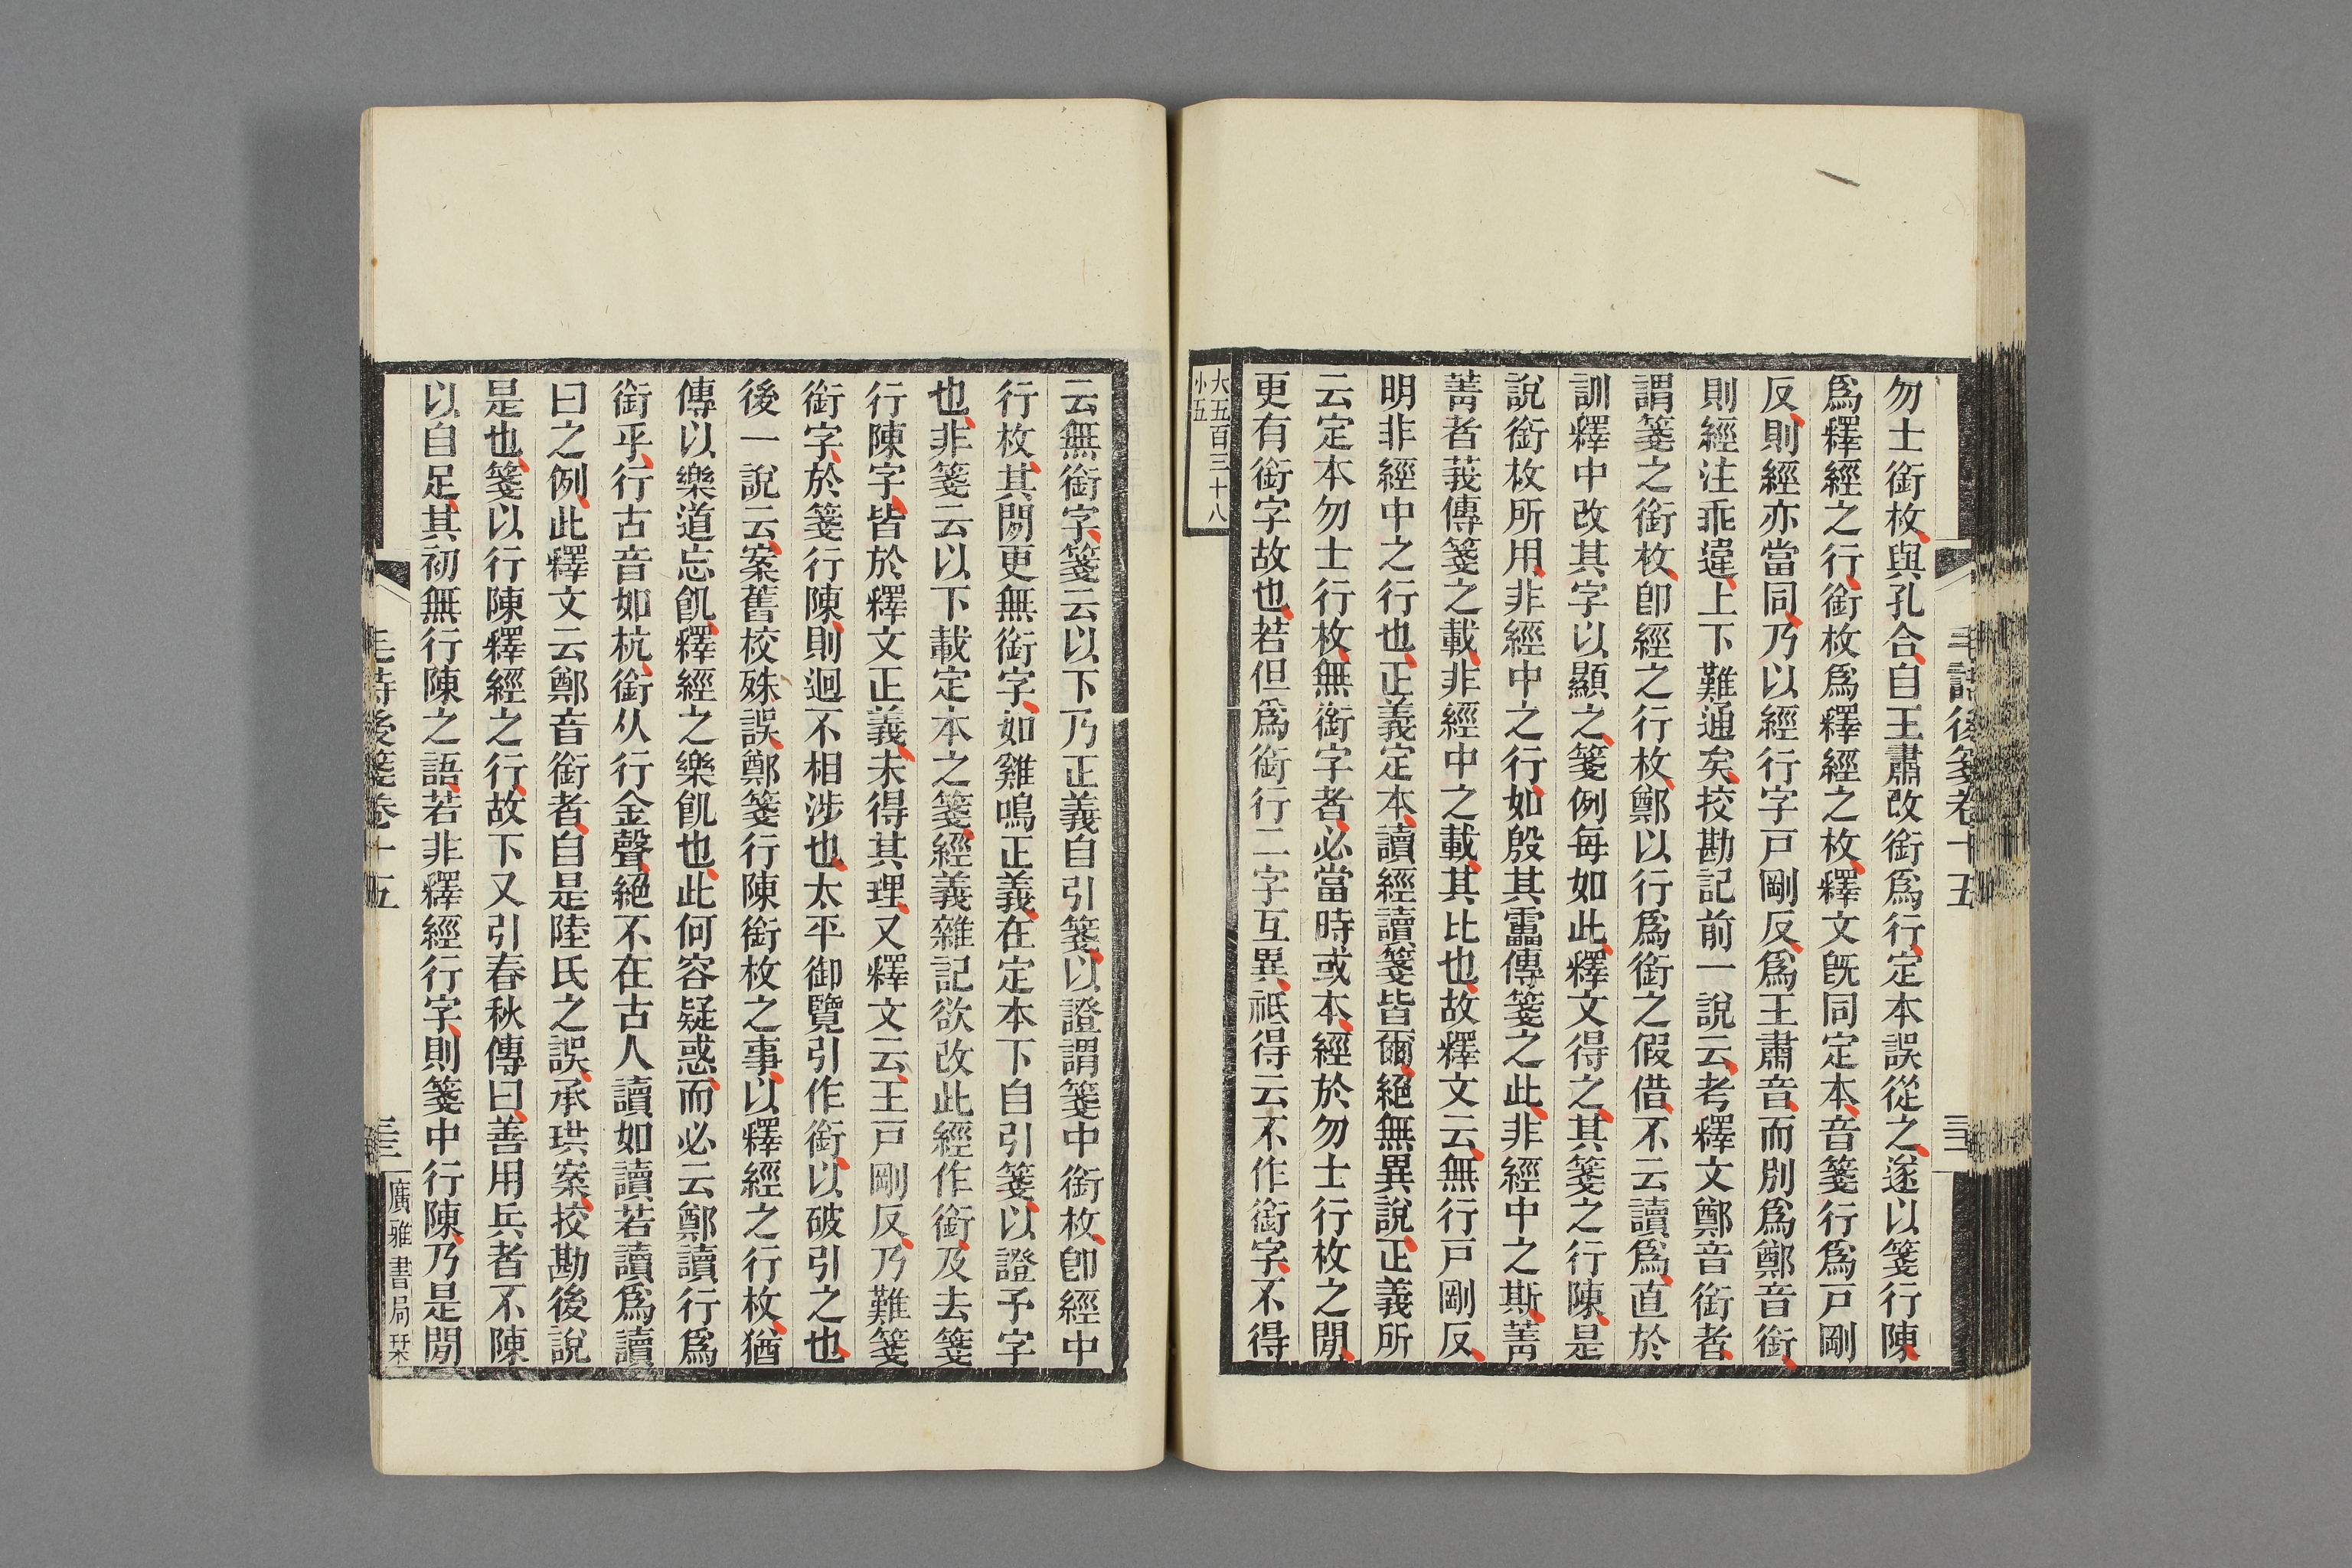 毛詩後箋卷十五
三三
勿士銜枚與孔合自王肅改銜爲行定本誤從之遂以箋行陳
爲釋經之行銜枚爲釋經之枚釋文旣同定本音箋行爲戸剛
反則經亦當同乃以經行字戸剛反爲王肅音而別爲鄭音銜
則經注乖違上下難通矣挍勘記前一說云考釋文鄭音銜者
謂箋之銜枚卽經之行枚鄭以行爲銜之假借不云讀爲直於
訓釋中改其字以顯之箋例每如此釋文得之其箋之行陳是
說銜枚所用非經中之行如殷其靁傳箋之此非經中之斯菁
菁者莪傳箋之載非經中之載其比也故釋文云無行戸剛反
明非經中之行也正義定本讀經讀箋皆爾絕無異說正義所
云定本勿士行枚無銜字者必當時或本經於勿士行枚之閒
更有銜字故也若但爲銜行二字互異祗得云不作銜字不得
大五百三十八
小五
云無銜字箋云以下乃正義自引箋以證謂箋中銜枚卽經中
行枚其閒更無銜字如雞鳴正義在定本下自引箋以證予字
也非箋云以下載定本之箋經義雜記欲改此經作銜及去箋
行陳字皆於釋文正義未得其理又釋文云王戸剛反乃難箋
銜字於箋行陳則迥不相涉也太平御覽引作銜以破引之也
後一說云案舊校殊誤鄭箋行陳銜枚之事以釋經之行枚猶
傳以樂道忘飢釋經之樂飢也此何容疑惑而必云鄭讀行爲
銜乎行古音如杭銜从行金聲絕不在古人讀如讀若讀爲讀
曰之例此釋文云鄭音銜者自是陸氏之誤承珙案挍勘後說
是也箋以行陳釋經之行故下又引春秋傳曰善用兵者不陳
以自足其初無行陳之語若非釋經行字則箋中行陳乃是閒
毛詩後箋卷十五
三三
廣雅書局栞